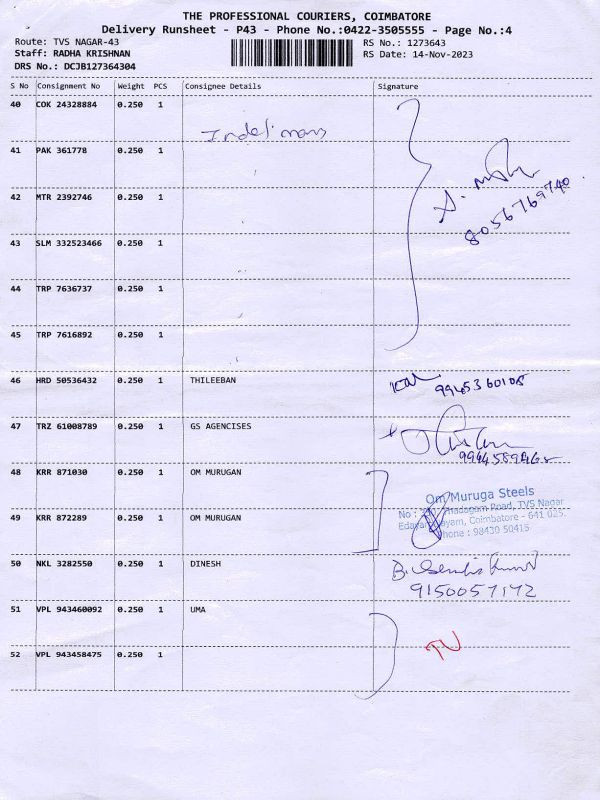 THE PROFESSIONAL COURIERS, COIMBATORE
Delivery Runsheet - P43 - Phone No.:0422-3505555 - Page No.:4
Route: TVS NAGAR-43 RS No.: 1273643
Staff: RADHA KRISHNAN RS Date: 14-Nov-2023
DRS No.: DCJB127364304
S No Consignment No Weight PCS Consignee Details Signature
40 COK 24328884 0.250 1
41 PAK 361778 0.250 1
42 MTR 2392746 0.250 1
8056769740
43 SLM 332523466 0.250 1
44 TRP 7636737 0.250 1
45 TRP 7616892 0.250 1
46 HRD 50536432 0.250 1 THILEEBAN
9945360108
47 TRZ 61008789 0.250 1 GS AGENCISES
48 KRR 871030 0.250 1 OM MURUGAN
Om Muruga Steels
No : Thadagam Road, TVS Nagar
49 KRR 872289 0.250 1 OM MURUGAN
Coimbatore - 641 025.
Phone : 98430 50415
50 NKL 3282550 0.250 1 DINESH
9150057172
51 VPL 943460092 0.250 1 UMA
52 VPL 943458475 0.250 1